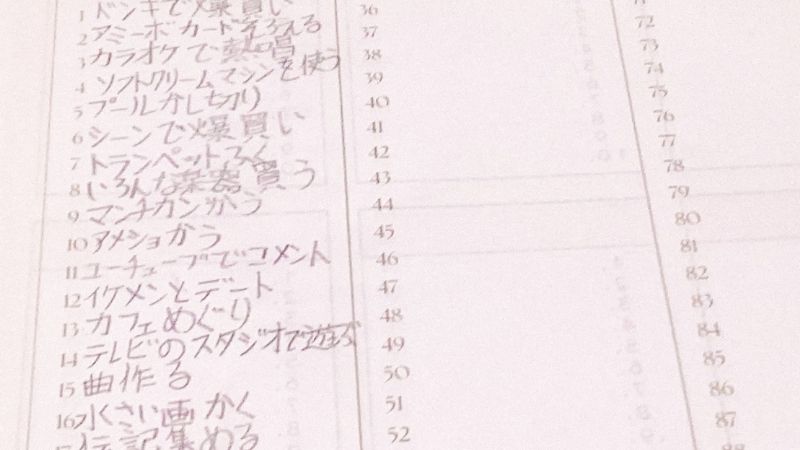 1 ドンキで爆買い
2 アミーボカードそろえる
3 カラオケで熱唱
4 ソフトクリームマシンを使う
5 プールかし切り
6 シーンで爆買い
7 トランペットふく
8 いろんな楽器買う
9 マンチカンかう
10 アメショかう
11 ユーチューブでコメント
12 イケメンとデート
13 カフェめぐり
14 テレビのスタジオで遊ぶ
15 曲作る
16 水さい画かく
伝記集める
36
37
38
39
40
41
42
43
44
45
46
47
48
49
50
51
52
72
73
74
75
76
77
78
79
80
81
82
83
84
85
86
87
88